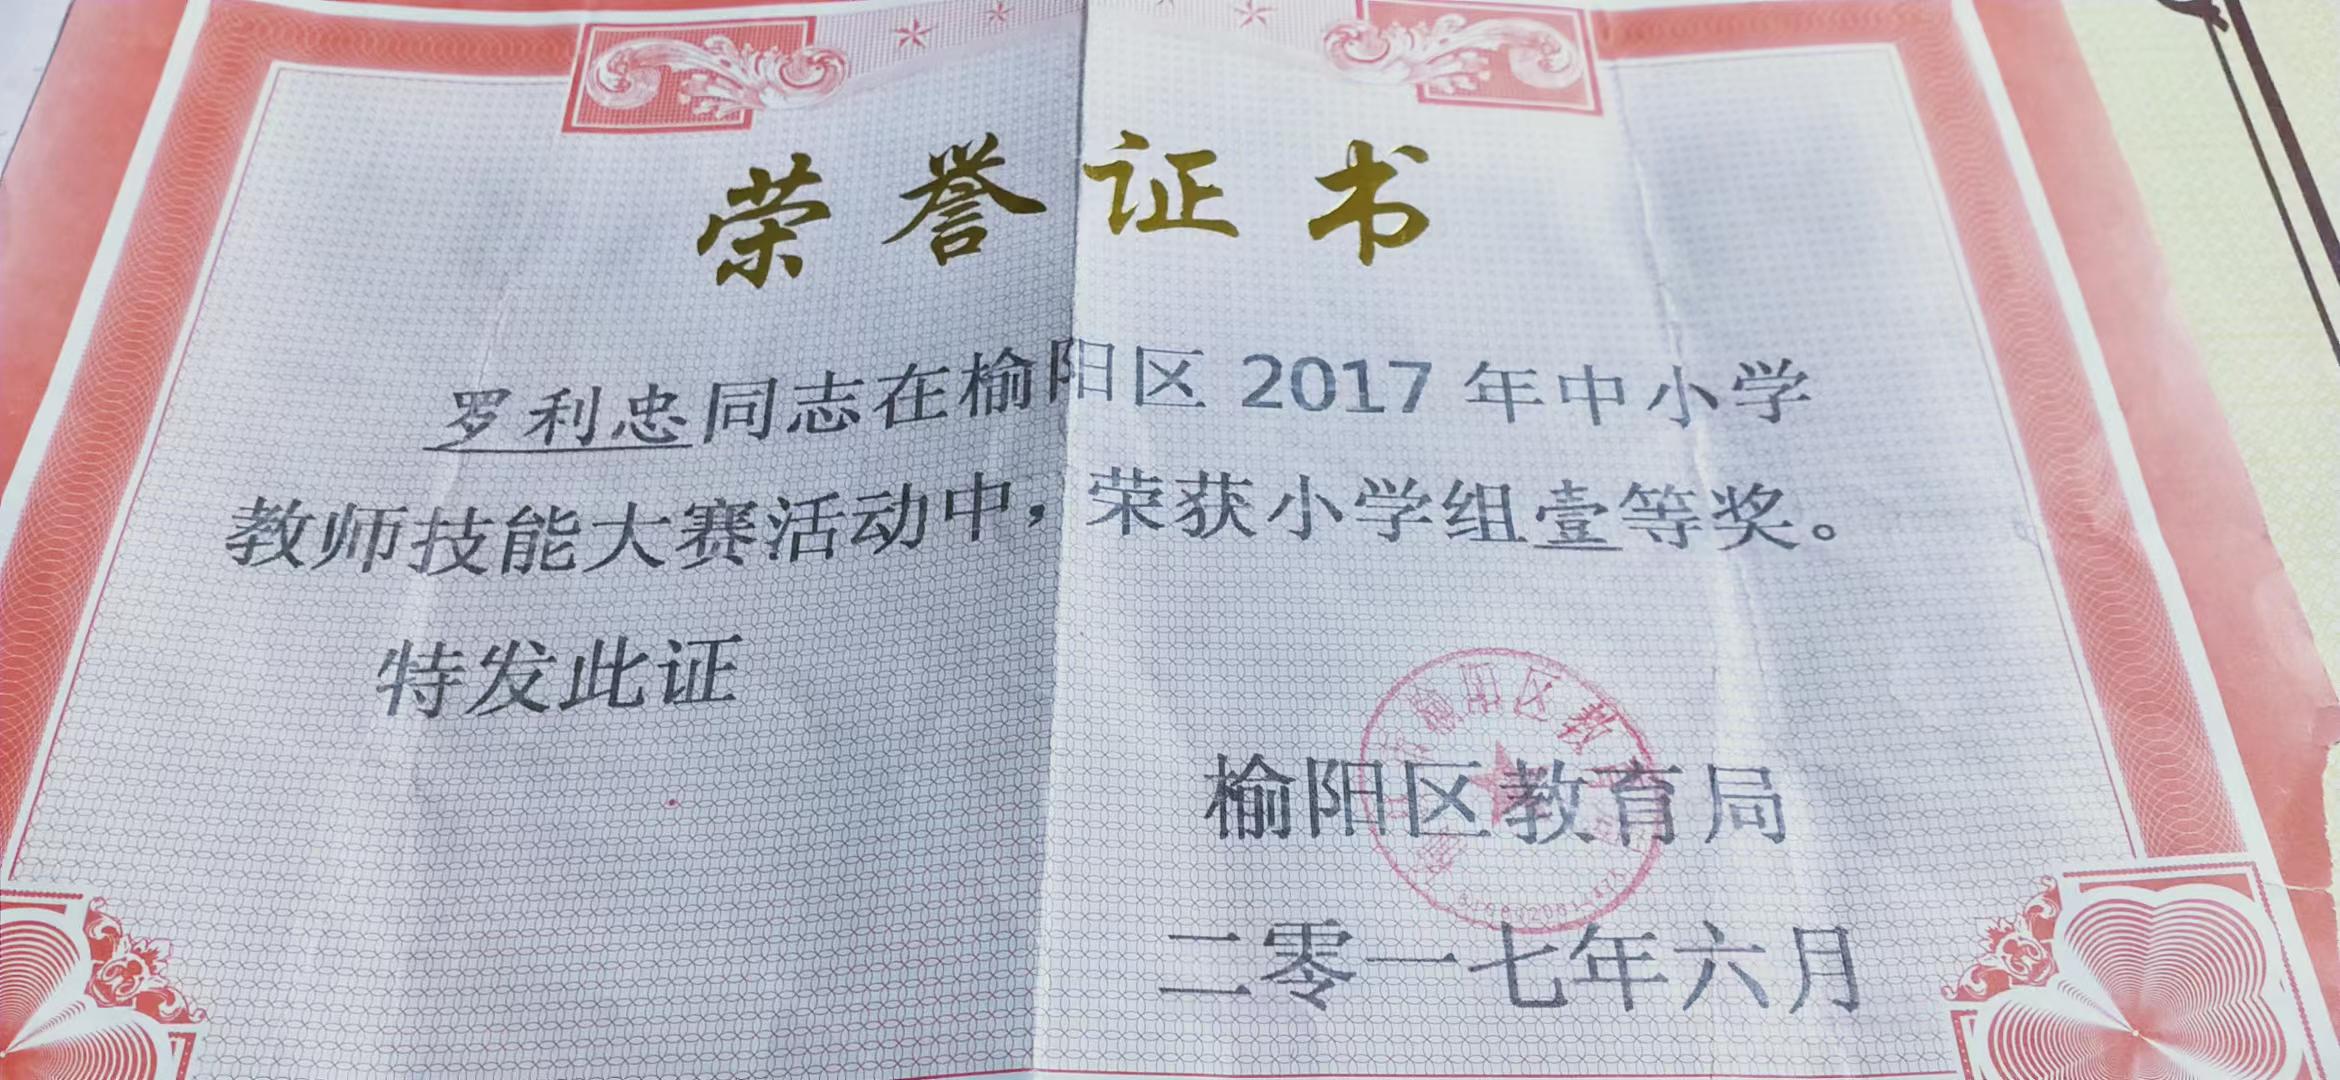 荣誉证书
罗利忠同志在榆阳区 2017 年中小学
教师技能大赛活动中，荣获小学组壹等奖。
特发此证
榆阳区教
榆阳区教育局
二零一七年六月